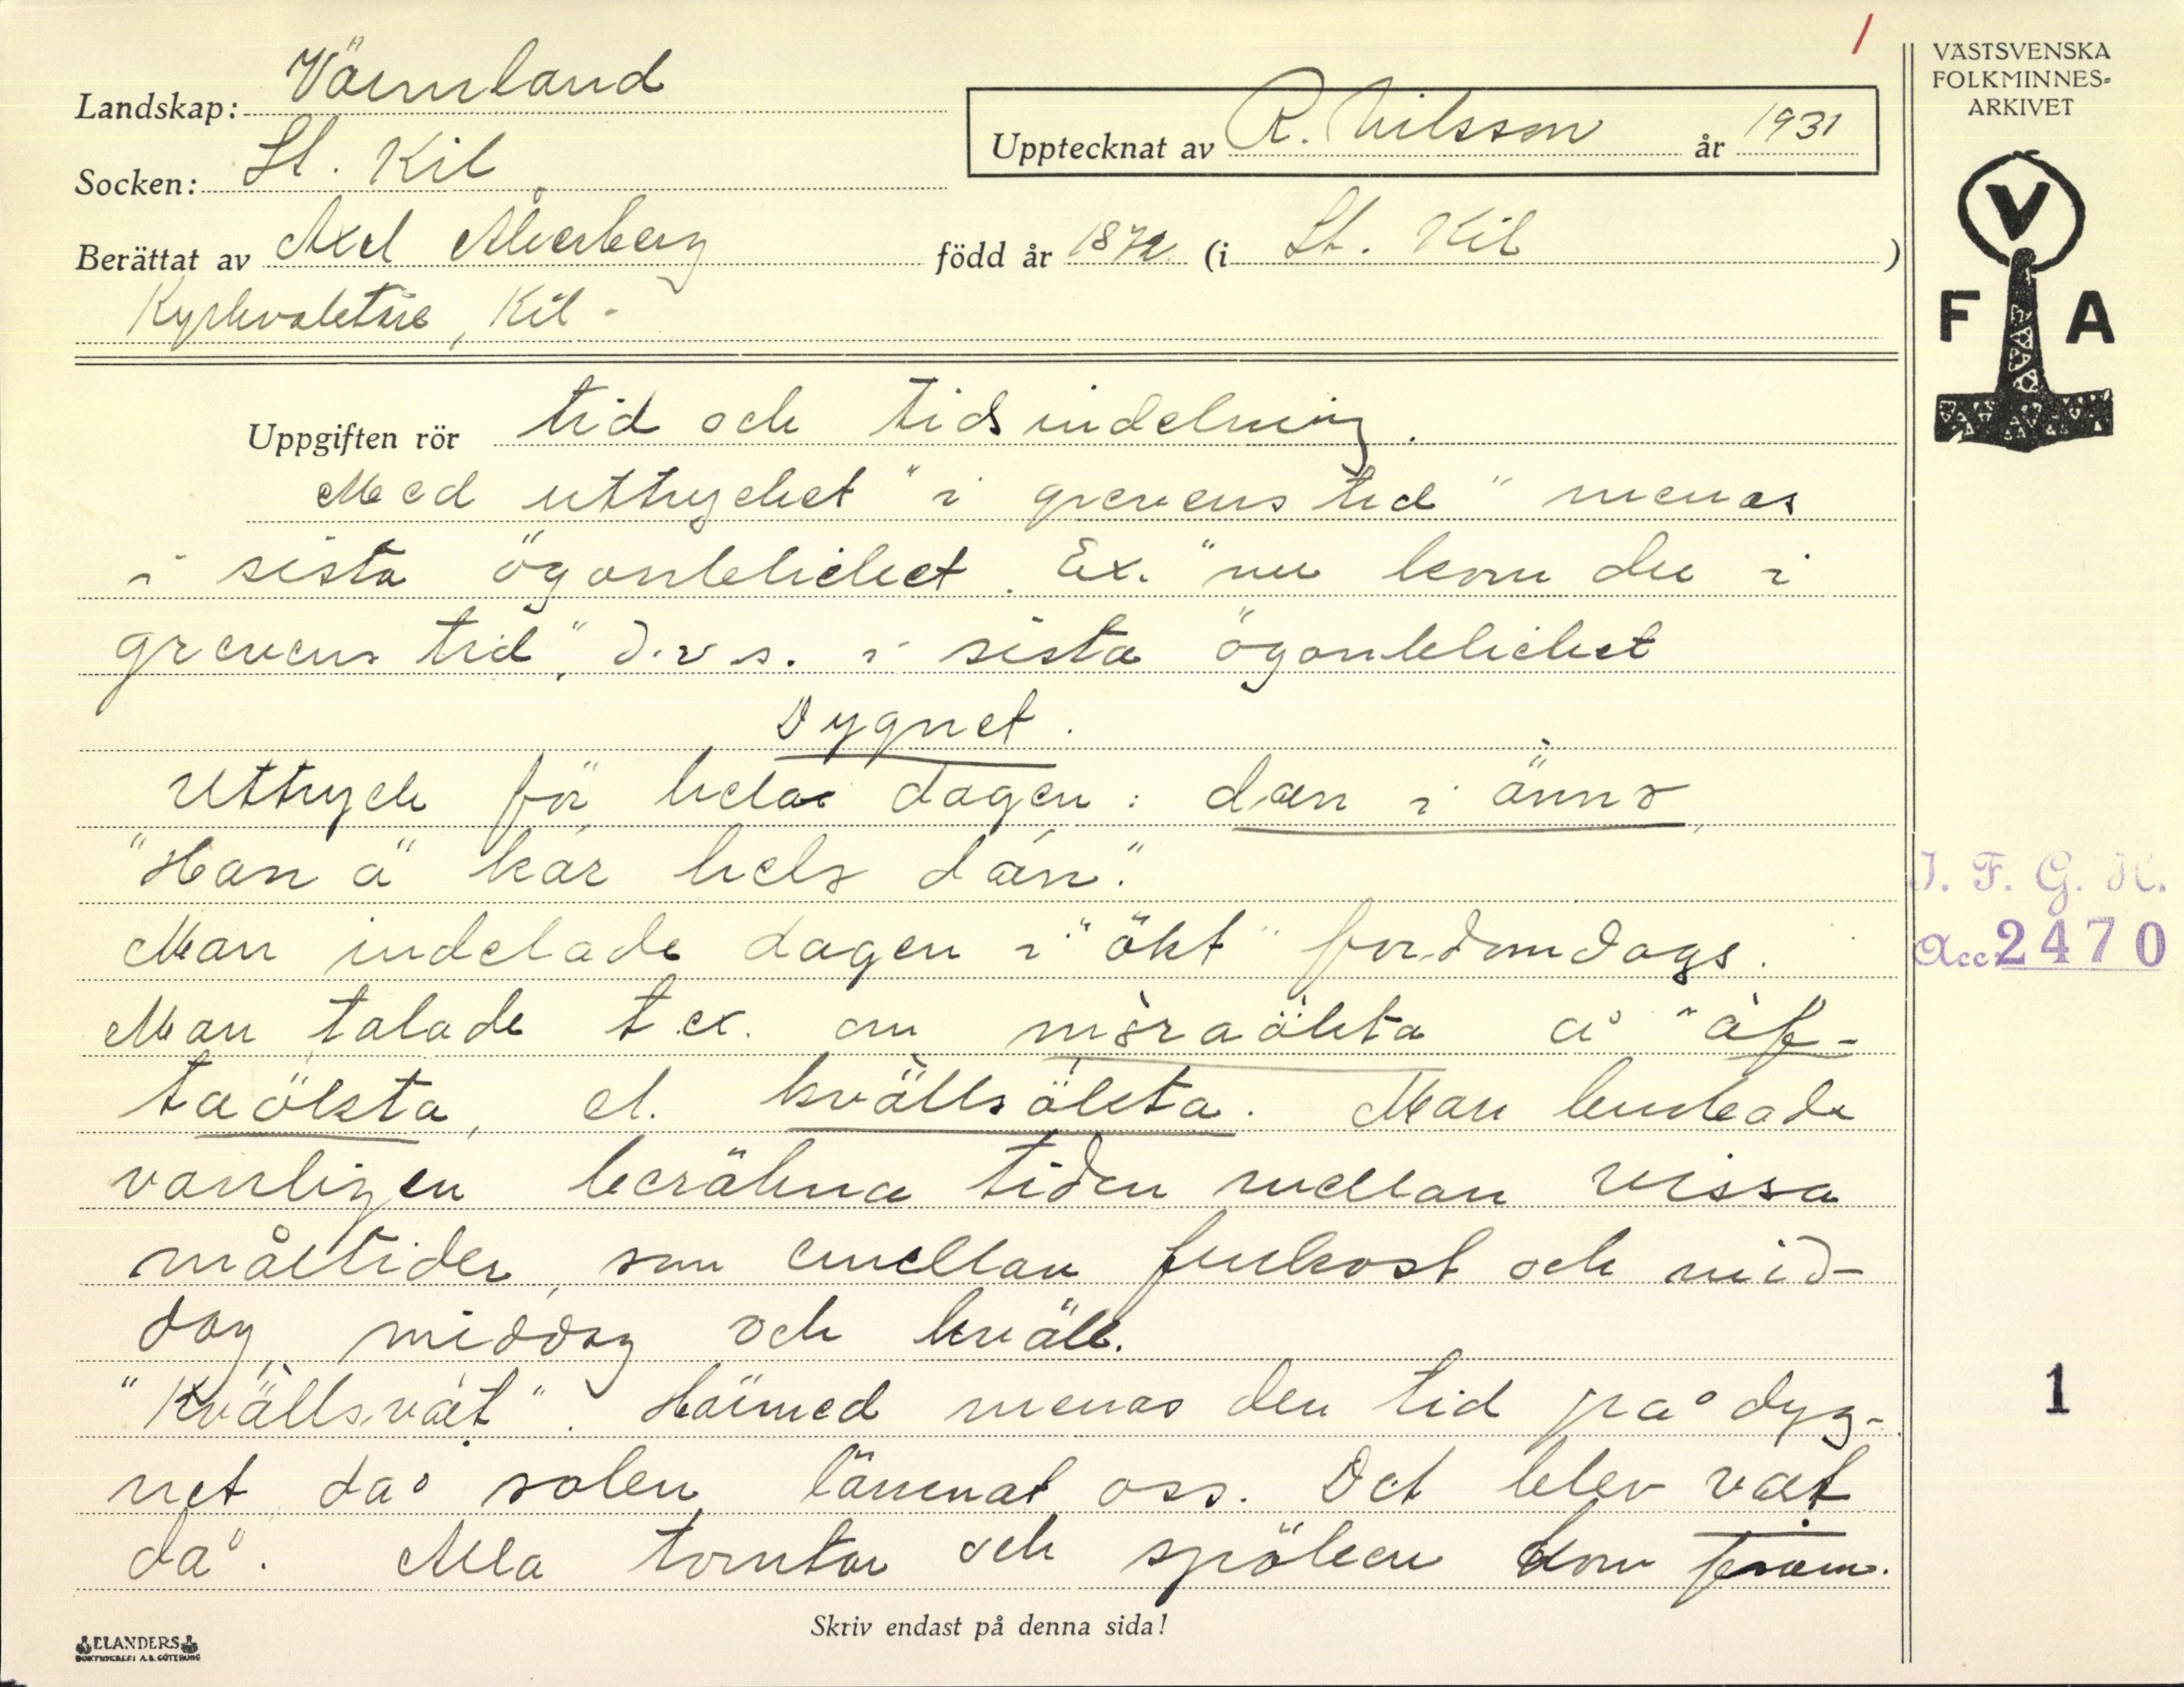 1
VÄSTSVENSKA
FOLKMINNES-
ARKIVET
Landskap: Värmland
Upptecknat av R. Nilsson år 1931
Socken: St. Kil
Berättat av Axel född år 1872 (i St. Kil)
Kil.
V
F A
Uppgiften rör tid och tidsindelning.
Med uttrycket "i grevens tid" menas
i sista ögonblicket. Ex. "nu kom du i
grevens tid", d.v.s. i sista ögonblicket
Dygnet.
Uttryck för hela dagen: dan i änns
"Han ä här hels dan".
Man indelade dagen i "ökt" fordomdags.
Man talade t.ex. om mòraökta å "àf-
taökta, el. kvällsökta. Man brukade
vanligen beräkna tiden mellan vissa
måltider, som emellan frukost och mid-
dag, middag och kväll.
"Kvällsvät". Härmed menas den tid på dyg-
net, då solen lämnat oss. Det blev vät
då. Alla tomtar och spöken kom fram.
I. F. G. H.
Acc 2470
1
Skriv endast på denna sida!
ELANDERS
BOKTRYCKERI A.B. GÖTEBORG